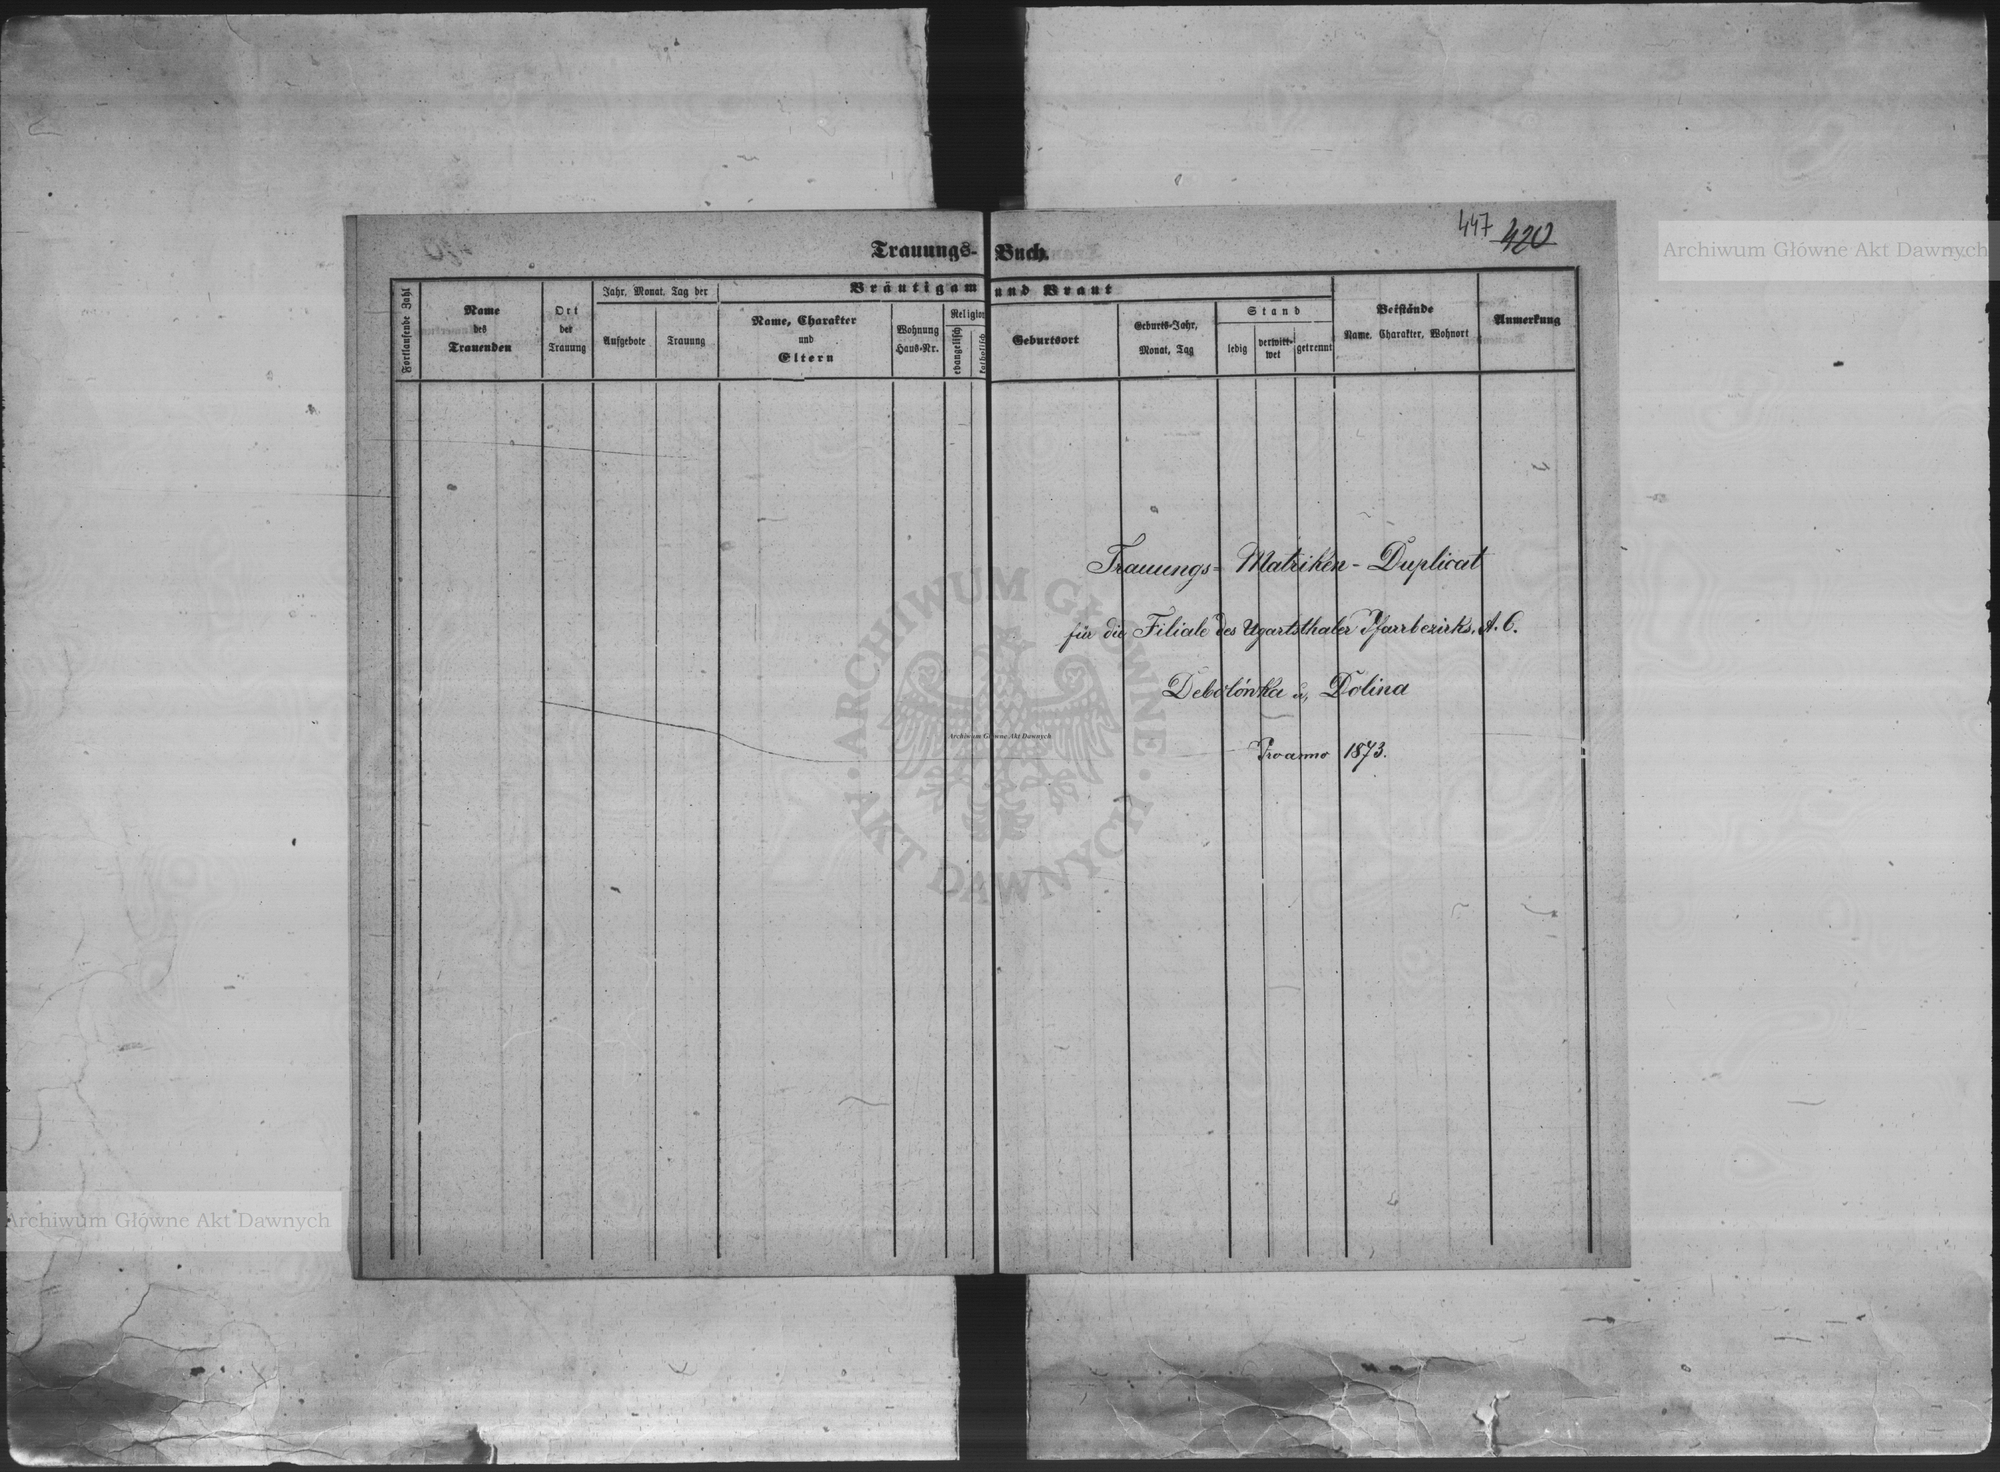 447 420
Trauungs-Buch.
Fortlaufende Zahl
Name
des
Trauenden
Ort
der
Trauung
Jahr, Monat, Tag der
Aufgebote
Trauung
Bräutigam und Braut
Name, Charakter
und
Eltern
Wohnung
Haus-Nr.
Religion
evangelisch
katholisch
Geburtsort
Geburts-Jahr,
Monat, Tag
Stand
ledig
verwitt-
wet
getrennt
Beistände
Name, Charakter, Wohnort
Anmerkung
Trauungs= Matriken - Duplicat
für die Filiale des Ugartsthaler Pfarrbezirks, A. C.
Debolówka u, Dolina
Pro anno 1873.
Archiwum Główne Akt Dawnych
ARCHIWUM GŁÓWNE
· AKT DAWNYCH ·
Archiwum Główne Akt Dawnych
Archiwum Główne Akt Dawnych